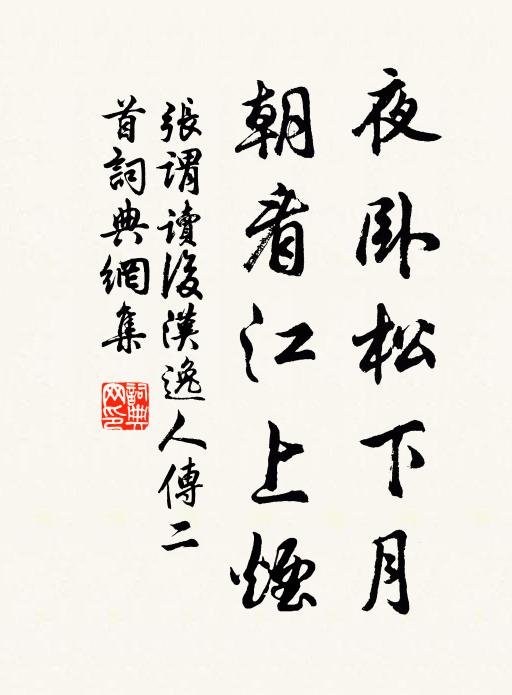 夜卧松下月
朝看江上煙
張謂讀後漢逸人傳二
首詞典網集
詞典网印